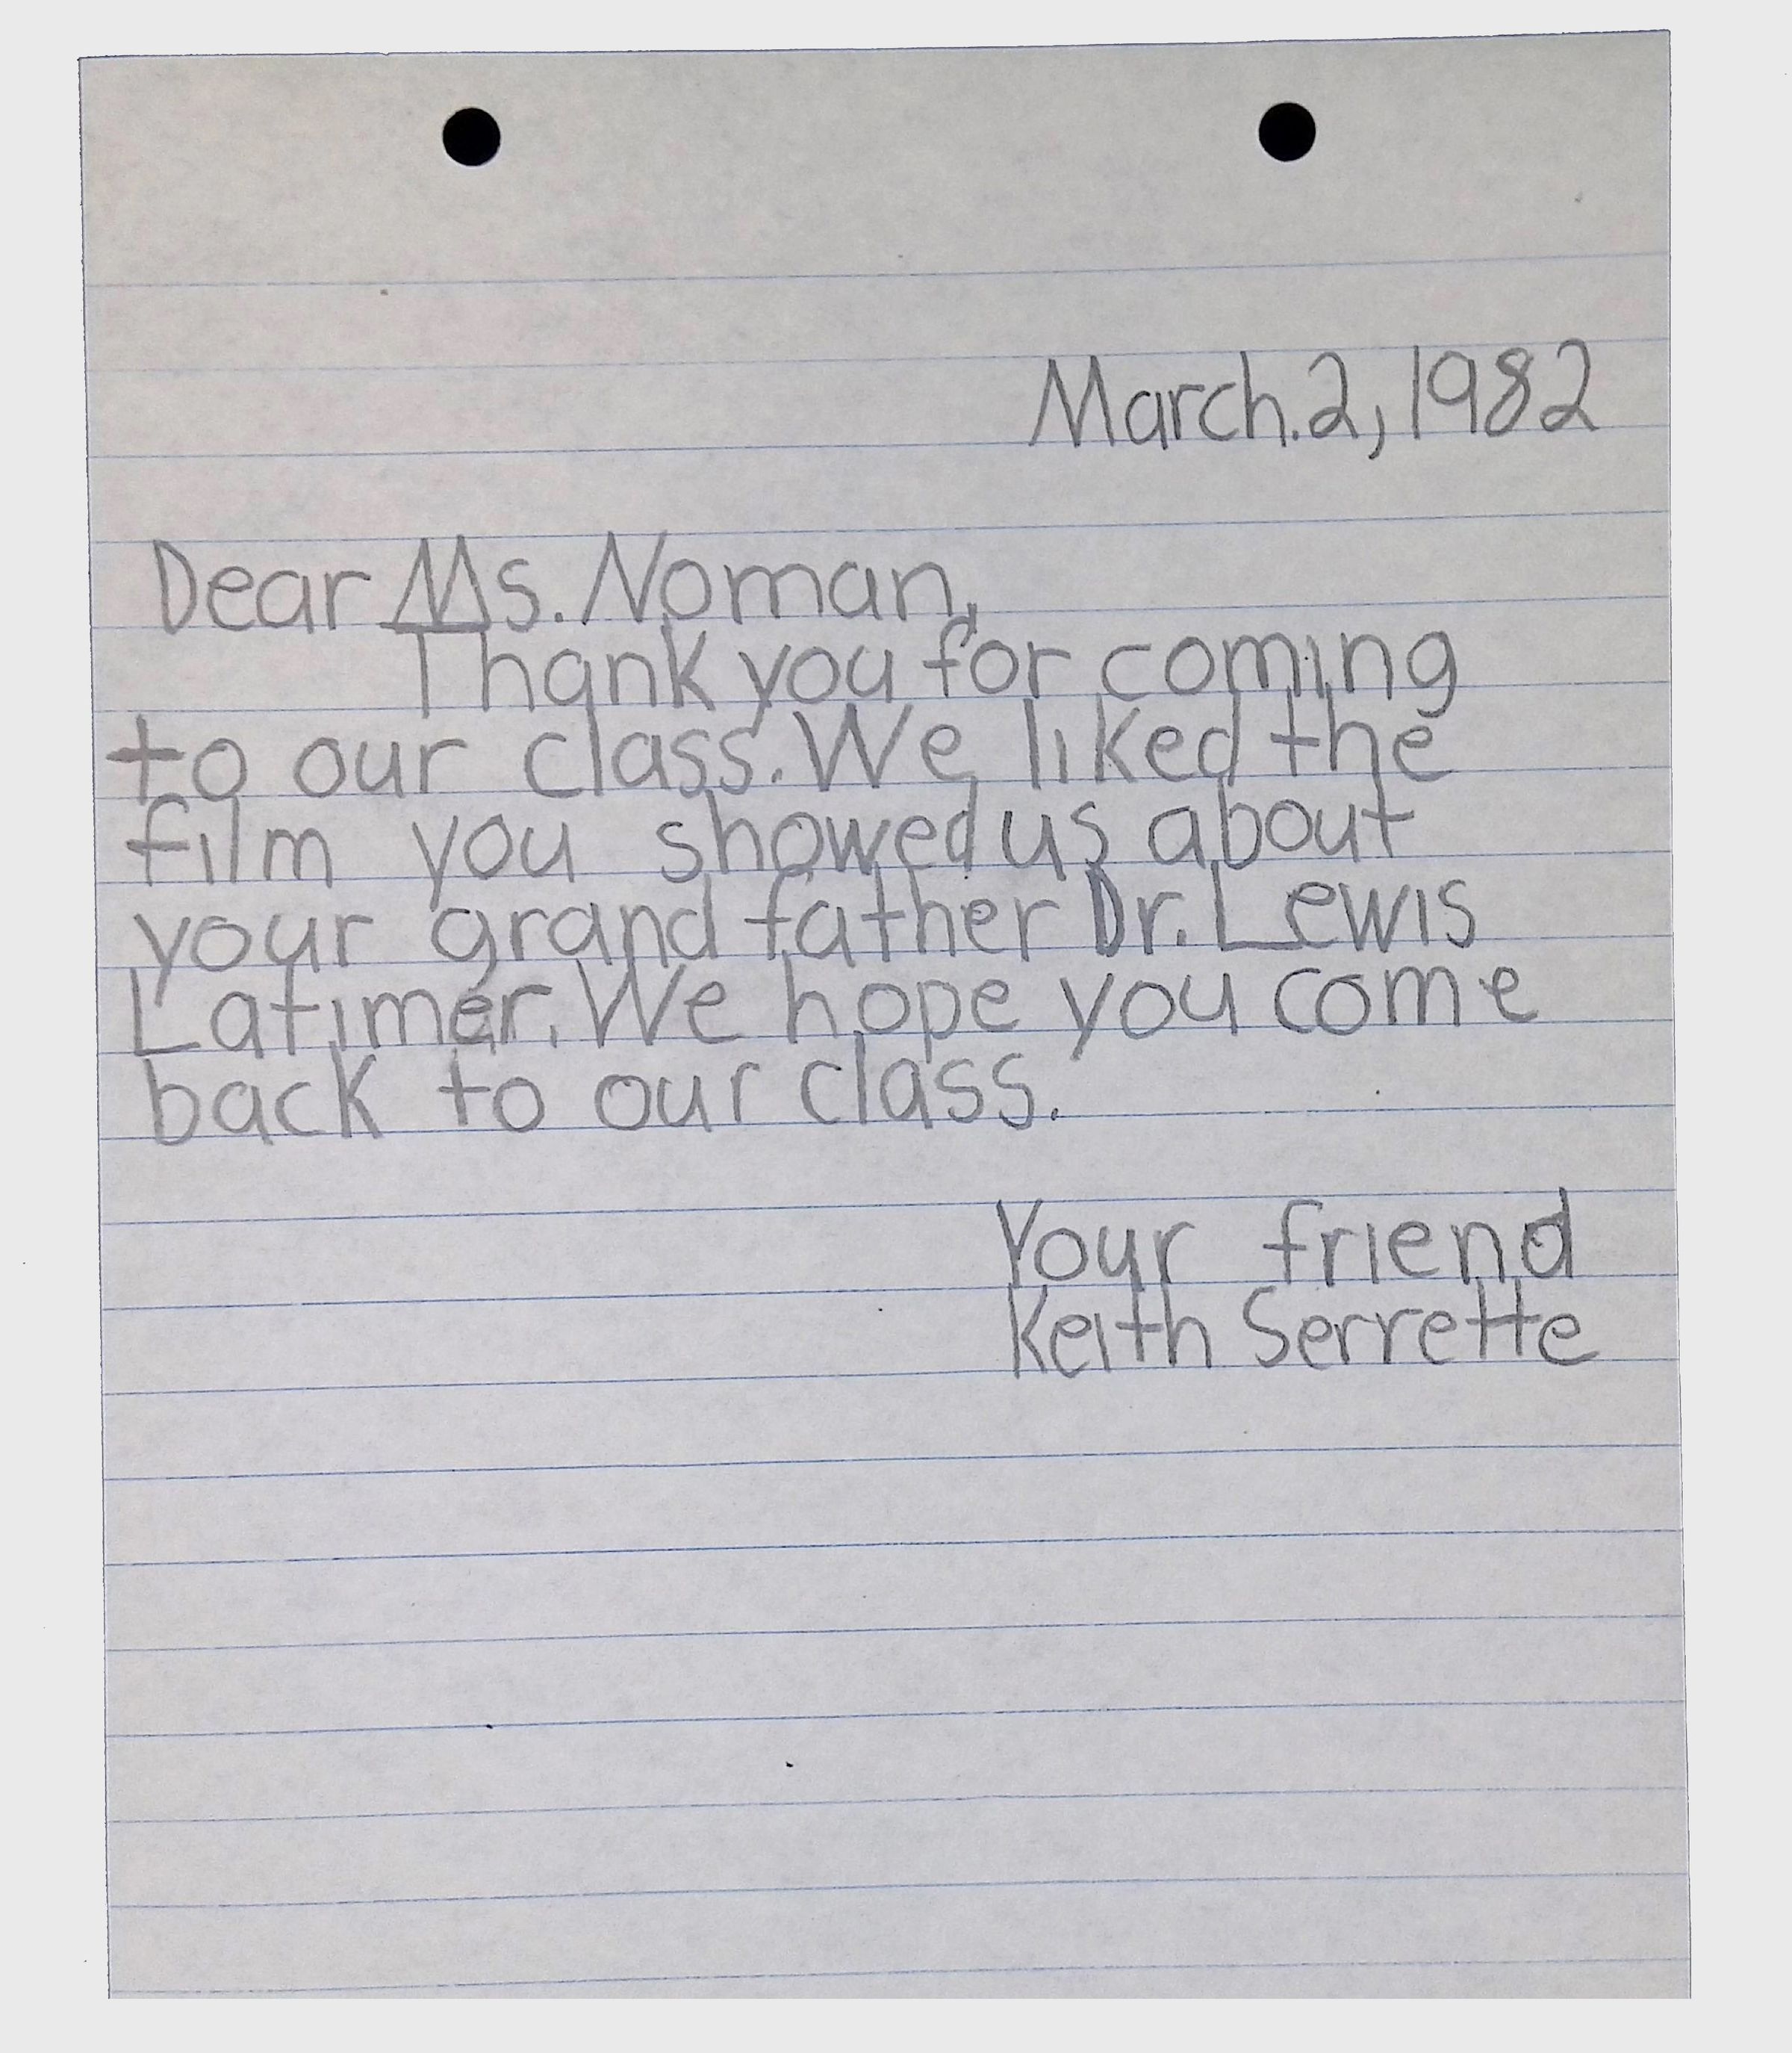 March. 2, 1982
Dear Ms. Noman,
Thank you for coming
to our class. We liked the
film you showed us about
your grand father Dr. Lewis
Latimer. We hope you come
back to our class.
Your friend
Keith Serrette